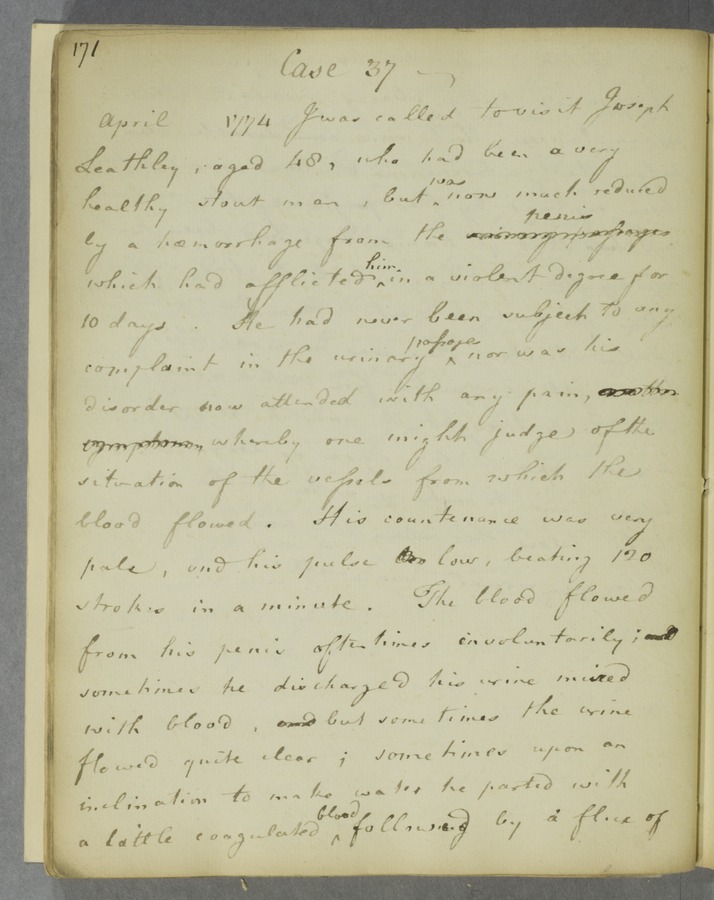 171
Case 37
April 1774 I was called to visit Joseph
Leathley, aged 48, who had been a very
healthy stout man, but was now much reduced
by a hæmorrhage from the penis
which had afflicted him in a violent degree for
10 days. He had never been subject to any
complaint in the urinary passages nor was his
disorder now attended with any pain,
symptoms, whereby one might judge of the
situation of the vessels from which the
blood flowed. His countenance was very
pale, and his pulse low, beating 120
strokes in a minute. The blood flowed
from his penis oftentimes involuntarily; and
sometimes he discharged his urine mixed
with blood, and but sometimes the urine
flowed quite clear; sometimes upon an
inclination to make water he parted with
a little coagulated blood followed by a flux of